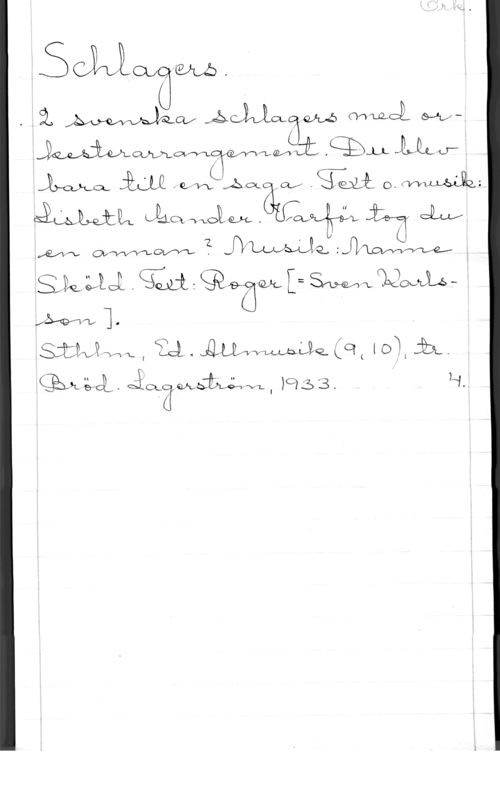 Ork.
Schlagers.
2 svenska schlagers med or-
kesterarrangement. Du blev
bara till en saga. Text o. musik:
Lisbeth Sander. Varför tog du
en annan? Musik: Manne
Sköld. Text: Roger [= Sven Karls-
son].
Sthlm, Ed. Allmusik (9, 10), tr.
Bröd. Lagerström, 1933. 4.